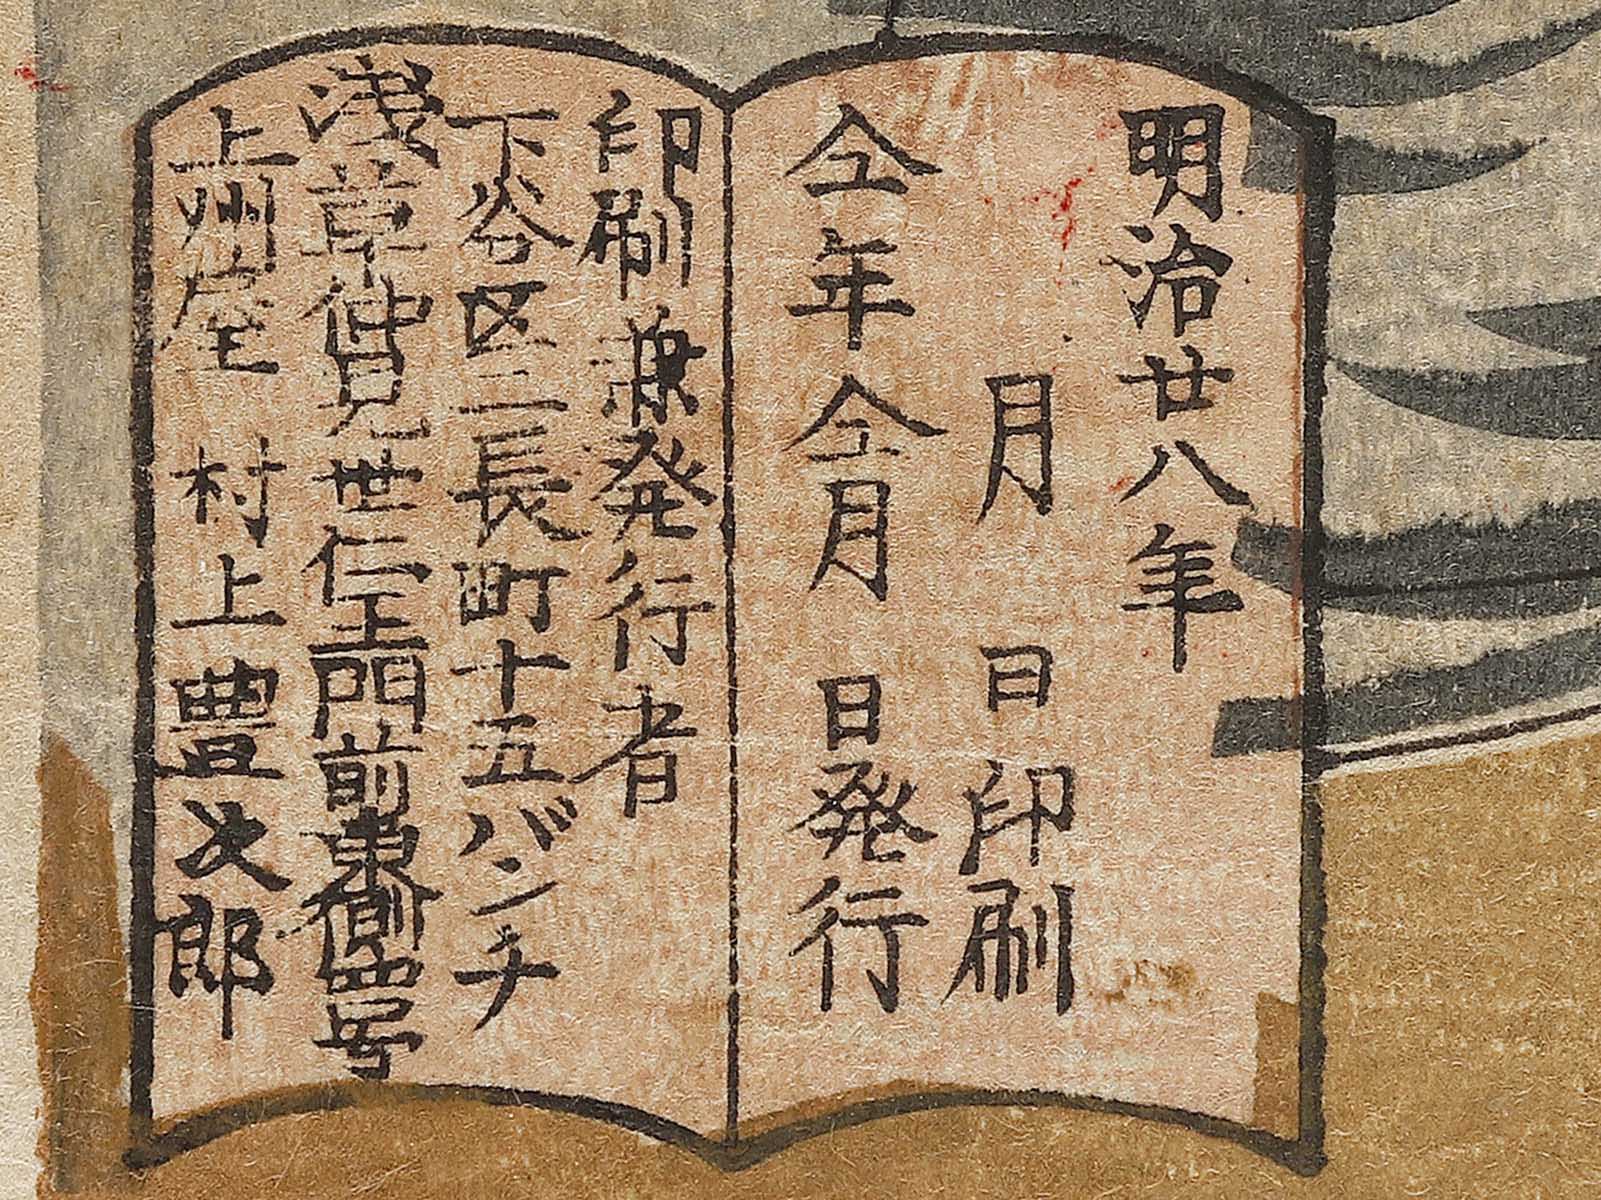 明治廿八年
月 日印刷
仝年仝月 日発行
印刷兼発行者
下谷区二長町十五バンチ
浅草仲見世仁王門前東側四号
上州屋 村上豊次郎